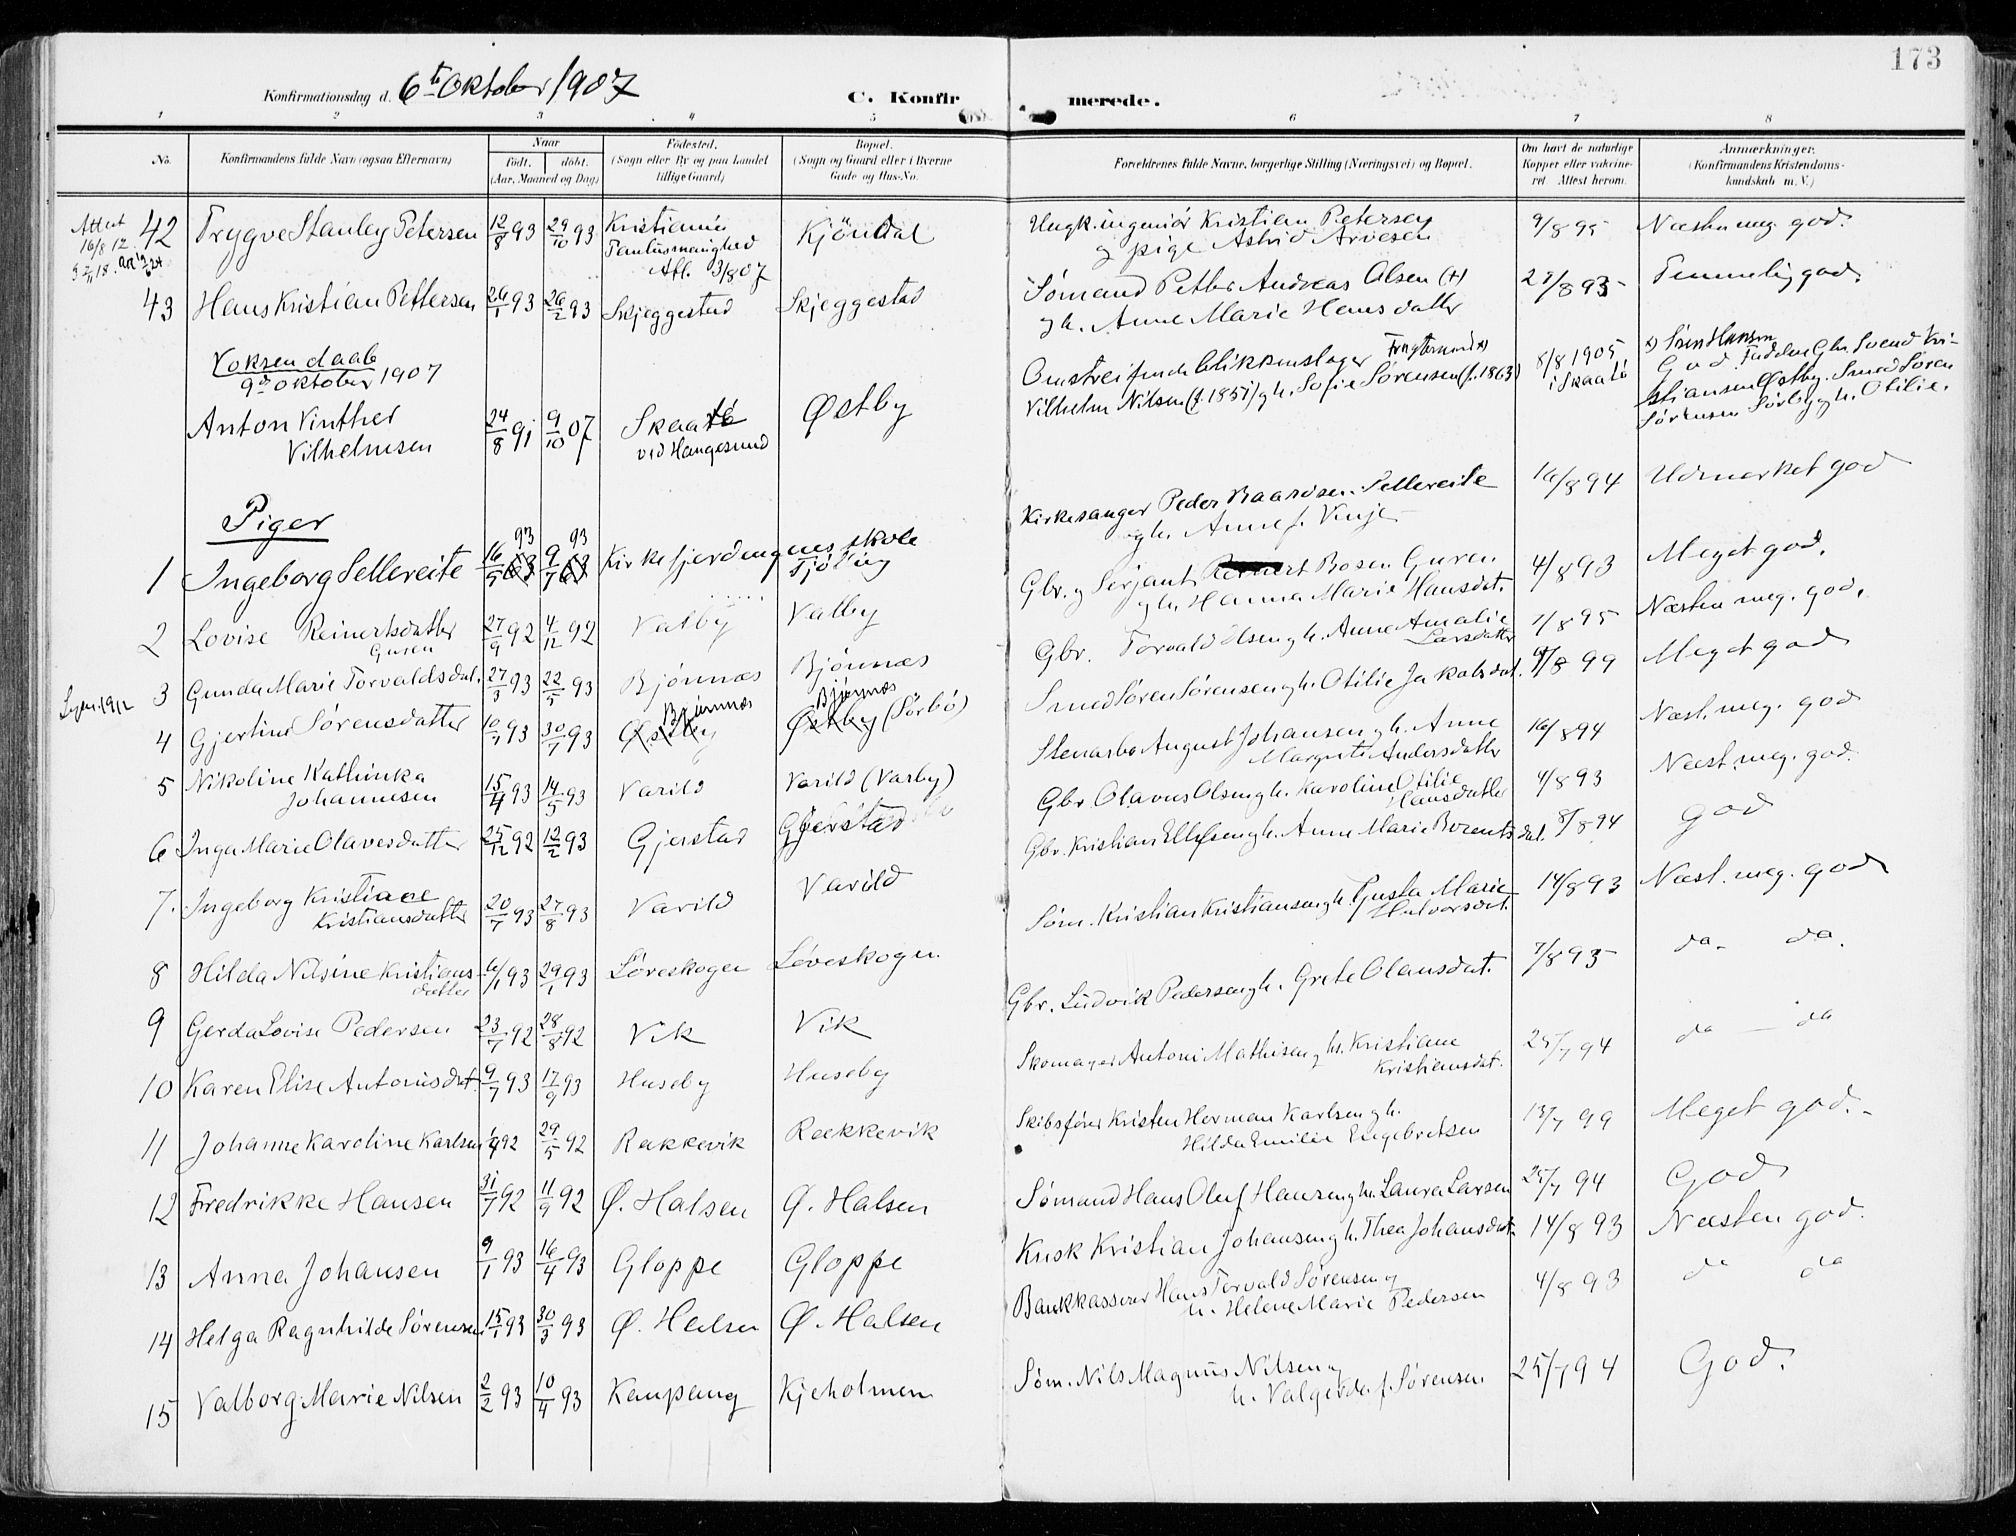 173
Konfirmationsdag d. 6te Oktober 1907
C. Konfirmerede.
1 2 3 4 5 6 7 8
No.
Konfirmandens fulde Navn (ogsaa Efternavn)
Naar
født. døbt.
(Aar, Maaned og Dag)
Fødested.
(Sogn eller By og paa Landet
tillige Gaard)
Bopæl.
(Sogn og Gaard eller i Byerne
Gade og Hus-No.
Forældrenes fulde Navne, borgerlige Stilling (Næringsvei) og Bopæl.
Om havt de naturlige
Kopper eller vaksine-
ret. Attest herom.
Anmærkninger.
(Konfirmandens Kristendoms-
kundskab m. V.)
Attest
16/8 12.
42 Trygve Stanley Petersen 12/8 93 29/10 93 Kristiania Kjöndal
Paulusmenighed
Afl. 3/8 07
Ungk. ingeniør Kristian Petersen
og pige Astrid Arvesen
9/8 95 Næsten meg. god.
43 Hans Kristian Pettersen 26/1 93 26/2 93 Skjeggestad Skjeggestad
Sømand Petter Andreas Olsen (+)
og h. Anne Marie Hansdatter
Temmelig god.
Voksendaab
9de Oktober 1907
Anton Vinther
Vilhelmsen
24/8 91 9/10 07 Skaatö Østby
vid Hangesund
Omstreifende blikkenslager
Vilhelm Nilsen (f. 1857) og h. Sofie Sørensen (f. 1863)
8/8 1905
i Skaatö
God Fadder Gbr. Svend Kri-
stiansen Østby. Smed Søren
Sørensen Sørby og h. Otilie.
Piger
1 Ingeborg Sellereite 16/5 93 9/7 93 Kirkefjerdingens skole
Tjölling
Kirkesanger Peder Baardsen Sellereite
og h. Anne f. Vinje
16/8 94 Udmerket god
2 Lovise Reinertsdatter 27/9 92 4/12 92 Valby Valby
Gusen
Gbr. og Serjant Reinert Bosen Gusen
og h. Hanna Marie Hansdat.
4/8 93 Meget god.
3 Gunda Marie Torvaldsdat. 27/3 93 22/5 93 Bjønnæs Bjønnæs
Gbr. Torvald Olsen og h. Anne Amalie
Larsdatter
1/8 95 Næsten meg. god.
4 Gjertine Sørensdatter 10/7 93 30/7 93 Østby Østby (Sørbö)
Bjønnæs Bjønnæs
Smed Søren Sørensen og h. Otilie Jakobsdat.
Meget god
5 Nikoline Kathinka
Johannesen
15/4 93 14/5 93 Varild Varild (Varby)
Stenarb. August Johansen og h. Anne
Margrete Andersdatter
16/8 94 Næst. meg. god
6 Inga Marie Olavesdatter 25/12 92 12/2 93 Gjerstad Gjerstad
Gbr. Olavus Olsen og h. Karoline Otilie
Hansdatter
4/8 93 Næst. meg. god.
7. Ingeborg Kristiane
Kristiansdatter
20/7 93 27/8 93 Varild Varild
Gbr. Kristian Ellefsen og h. Anne Marie Borentsdat.
8/8 94 god
8 Hilda Nilsine Kristians-
datter
6/1 93 29/1 93 Løveskogen Løveskogen
Søm. Kristian Kristiansen og h. Gusta Marie
Halvorsdat.
14/8 93 Næst. meg. god
9 Gerda Lovise Pedersen 23/7 92 28/8 92 Vik Vik
Gbr. Ludvik Pedersen og h. Grete Olausdat.
7/8 95 da. da.
10 Karen Elise Antonisdat. 9/7 93 17/9 93 Huseby Huseby
Skomager Antoni Mathisen og h. Kristiane
Kristiansdat.
25/7 94 da — da
11 Johanne Karoline Karlsen 92 29/5 92 Rakkevik Rækkevik
Skibsfører Kristen Herman Karlsen og h.
Hilda Emilie Engebretsen
13/7 99 Meget god.
12 Fredrikke Hansen 31/7 92 11/9 92 Ø. Halsen Ø. Halsen
Sømand Hans Oluf Hansen og h. Laura Larsen
25/7 94 God
13 Anna Johansen 9/1 93 16/4 93 Gloppe Gloppe
Kusk Kristian Johansen og h. Thea Johansdat.
14/8 93 Næsten god.
14 Helga Ragnhilde Sørensen 15/1 93 30/3 93 Ø. Halsen Ø. Halsen
Bankkasserer Hans Torvald Sørensen og
h. Helene Marie Pedersen
4/8 93 da da
15 Valborg Marie Nilsen 2/2 93 10/4 93 Kaupang Kjeholmen
Søm. Nils Magnus Nilsen og
h. Valgerda f. Sørensen
25/7 94 God.